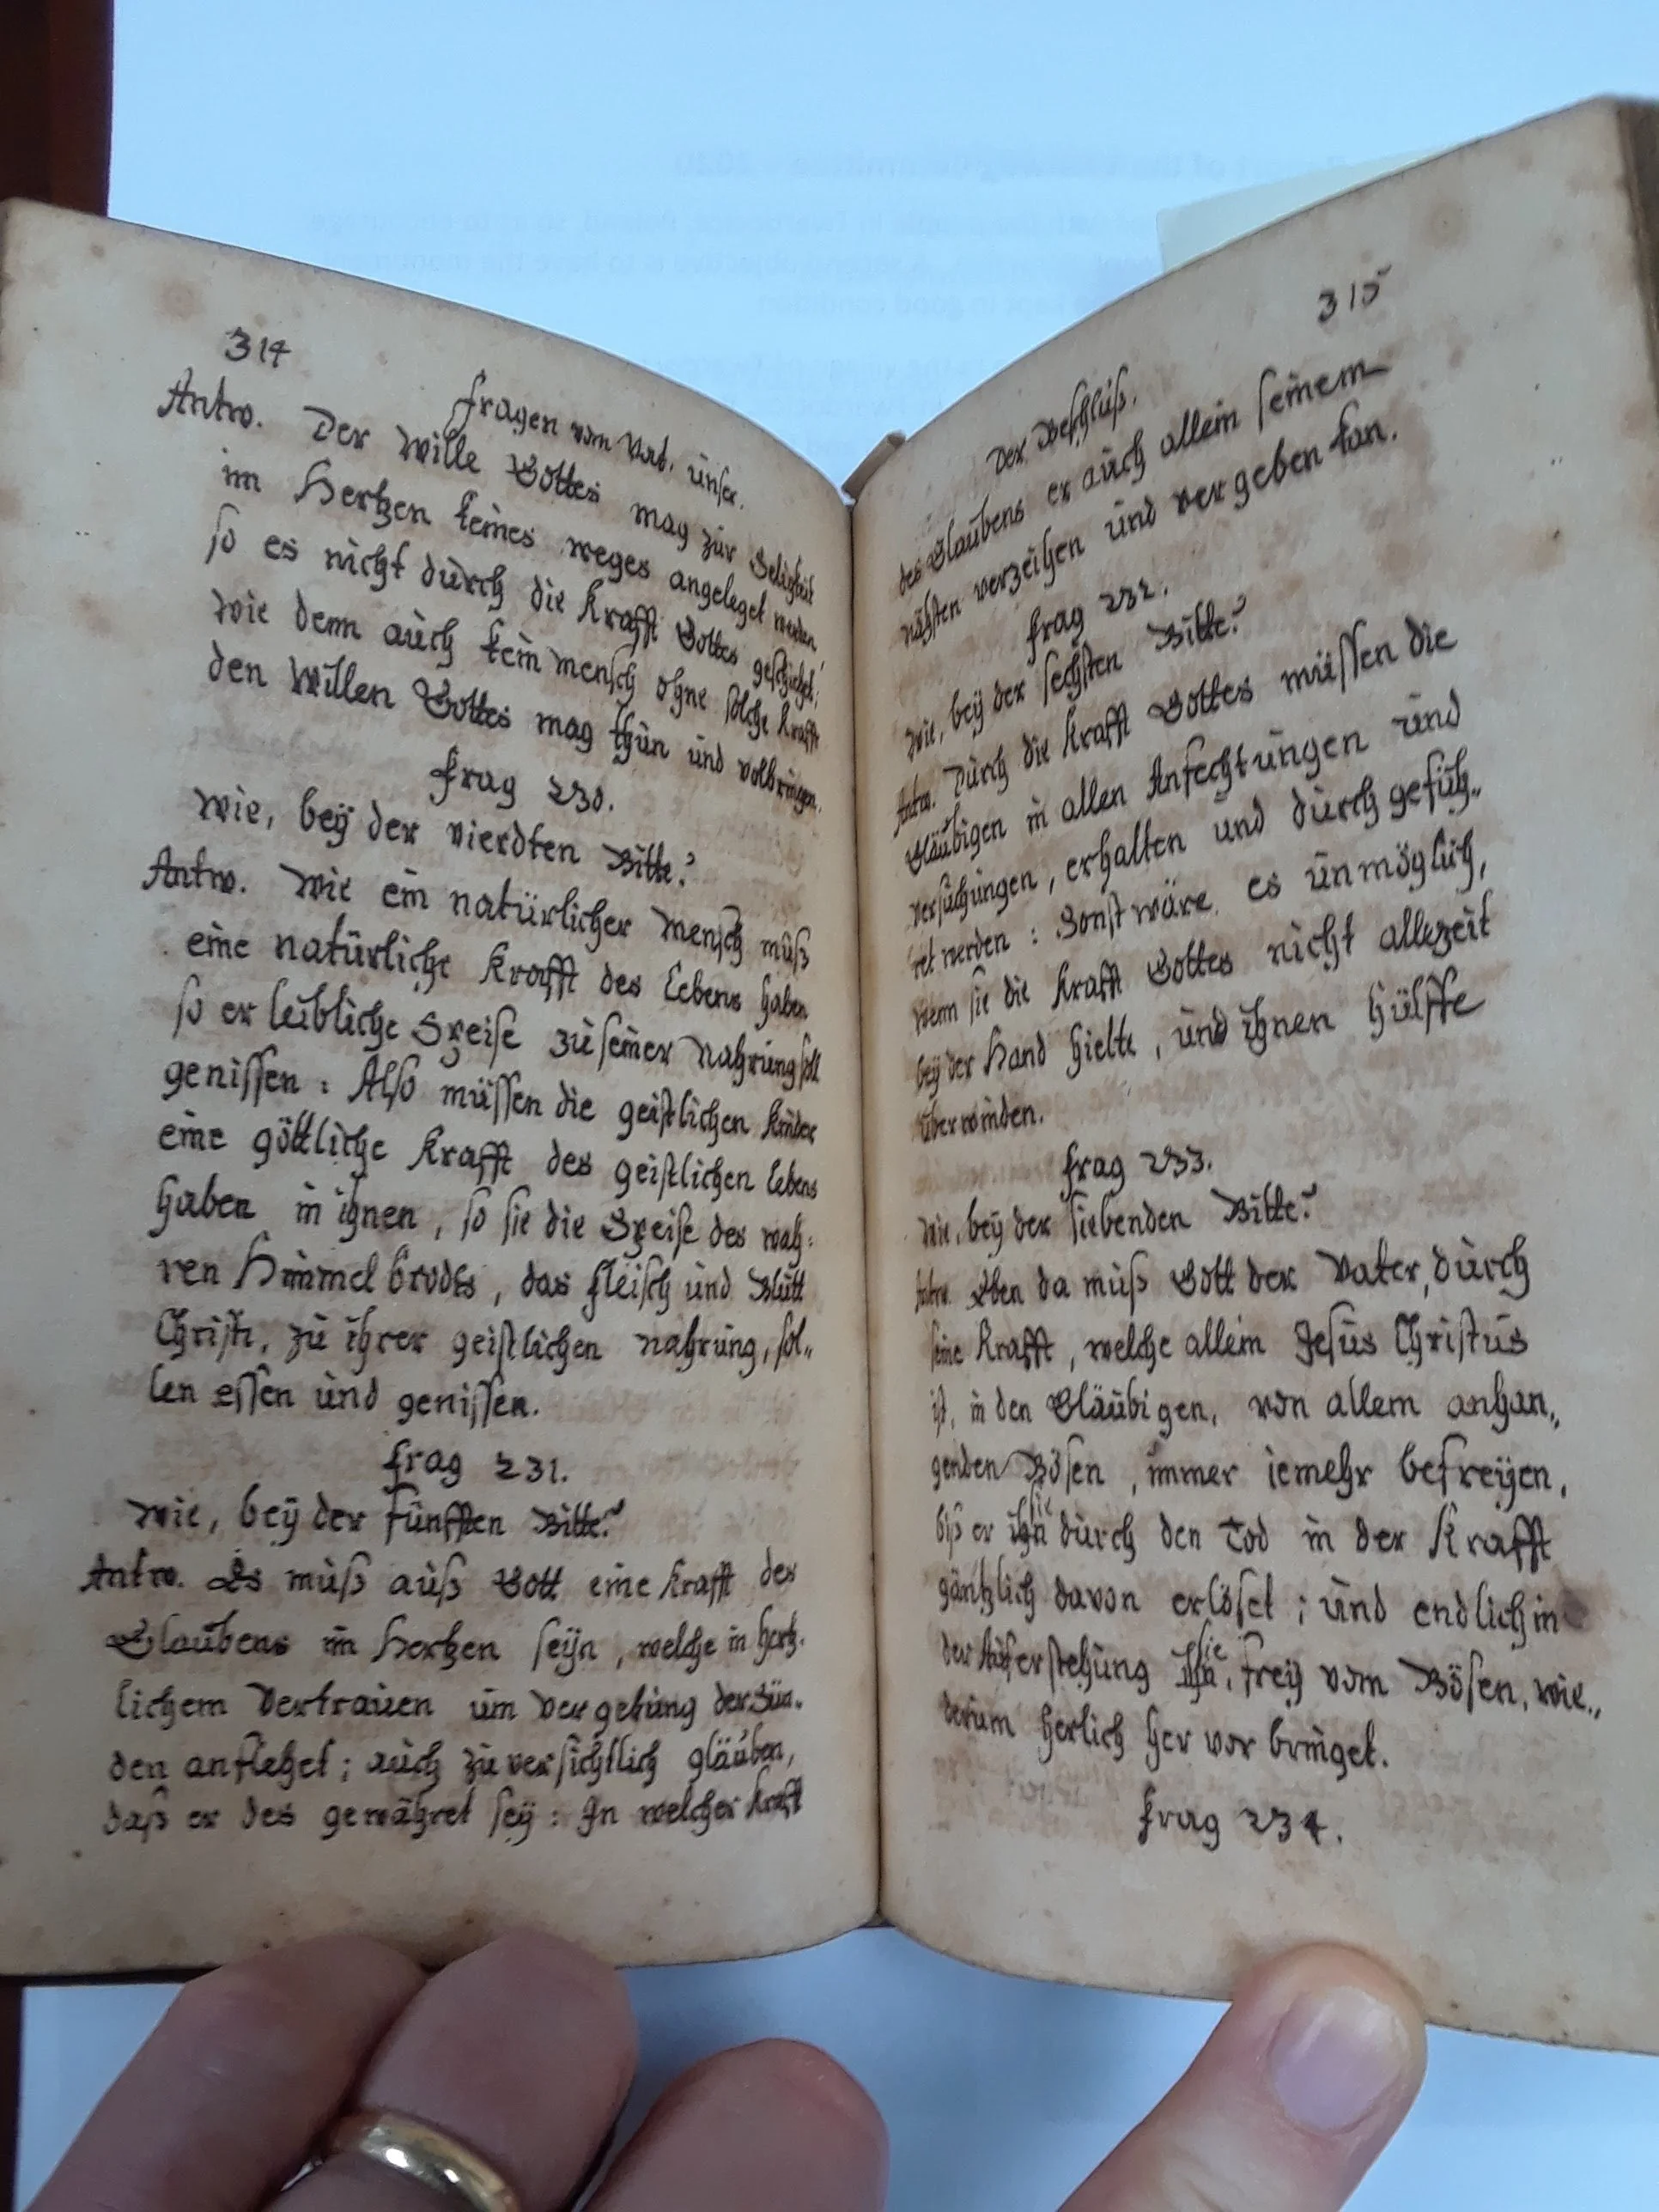 314
Fragen vom Vat. unser.
Antw. Der Wille Gottes mag zur Seligkeit
im Hertzen keines weges angeleget werden,
so es nicht durch die Krafft Gottes geschiehet;
wie denn auch kein mensch ohne solche Krafft
den Willen Gottes mag thun und volbringen.
Frag 230.
Wie, beÿ der vierdten Bitte?
Antw. Wie ein natürlicher Mensch muß
eine natürliche Krafft des Lebens haben
so er leibliche Speise zu seiner Nahrung soll
genissen: Also müssen die geistlichen Kinder
eine göttliche Krafft des geistlichen Lebens
haben in ihnen, so sie die Speise des wah:
ren Himmelbrodts, das fleisch und Blutt
Christi, zu ihrer geistlichen nahrung, sol„
len essen und genissen.
Frag 231.
Wie, beÿ der Fünfften Bitte?
Antw. Es muß auß Gott eine Krafft des
Glaubens im Hertzen seÿn, welche in hertz-
lichem Vertrauen um Vergebung der Sün-
den anflehet; auch zuversichtlich gläuben,
daß er des gewähret seÿ: In welcher Krafft
315
Der Beschluß.
des Glaubens er auch allein seinem
nähsten verzeihen und vergeben kan.
Frag 232.
Wie, beÿ der sechsten Bitte?
Antw. Durch die Krafft Gottes müssen die
Gläubigen in allen Anfechtungen und
versuchungen, erhalten und durchgefüh„
ret werden: Sonst wäre es unmöglich,
wenn sie die Krafft Gottes nicht allezeit
beÿ der Hand hielte, und ihnen hülffe
überwinden.
Frag 233.
Wie, beÿ der siebenden Bitte?
Antw. Eben da muß Gott der Vater, durch
seine Krafft, welche allein Jesus Christus
ist, in den Gläubigen, von allem anhan„
genden Bösen, immer iemehr befreÿen,
biß er ihn sie durch den Tod in der Krafft
gäntzlich davon erlöset; und endlich in
der Auferstehung Ihn sie, freÿ vom Bösen, wie„
derum herlich hervor bringet.
Frag 234.